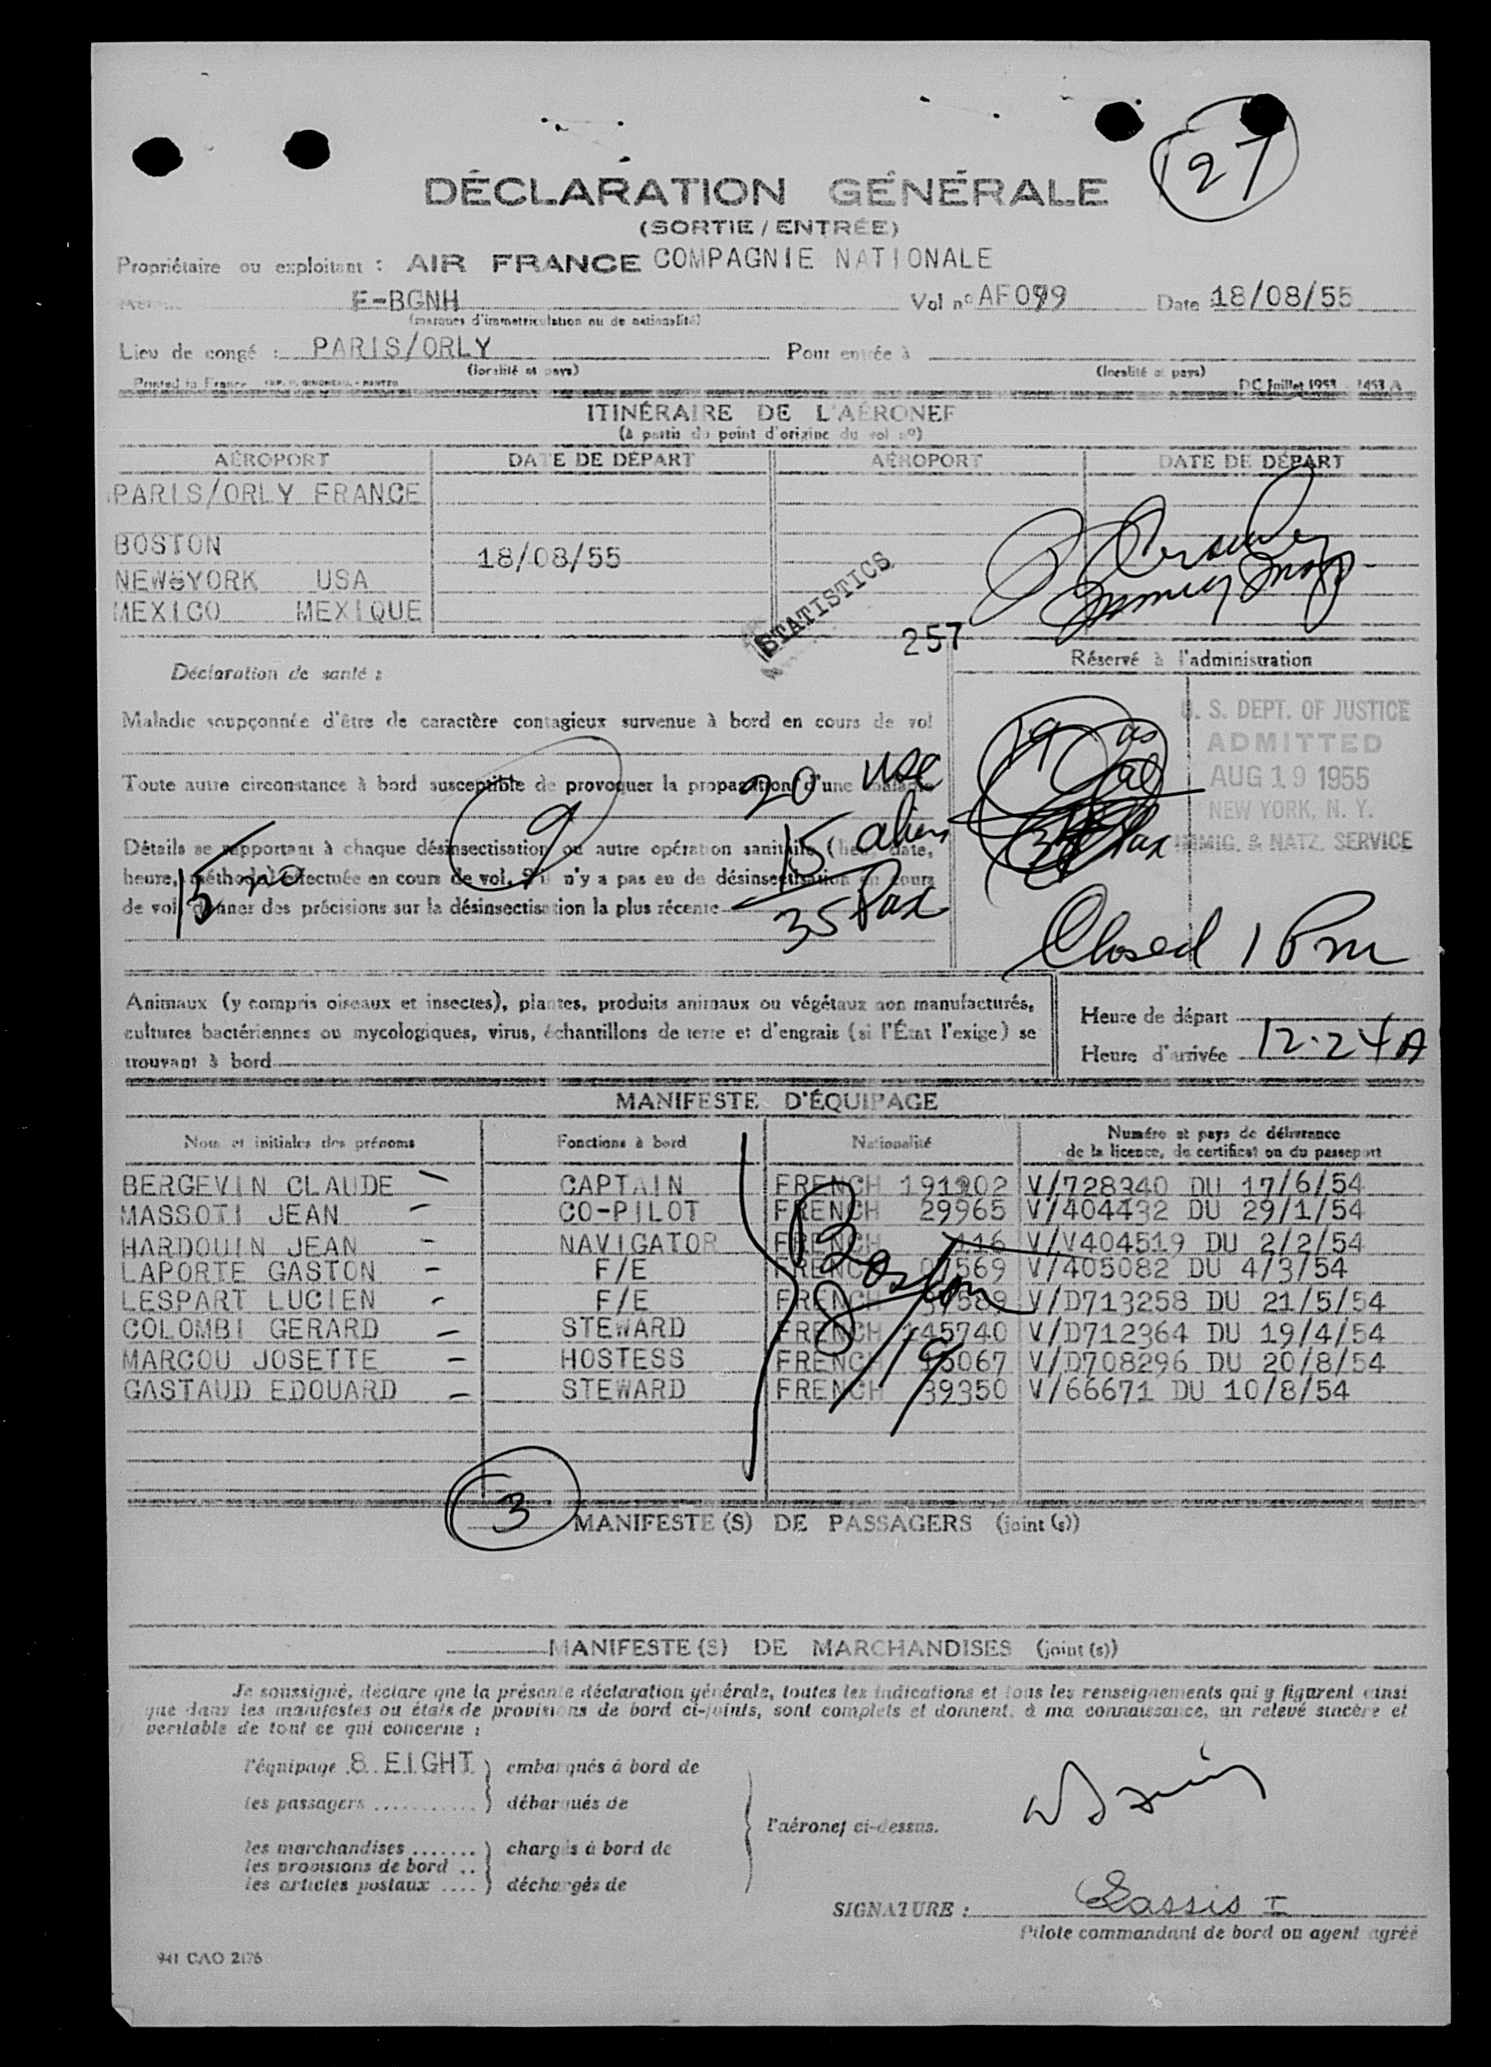 27
DÉCLARATION GÉNÉRALE
(SORTIE / ENTRÉE)
Propriétaire ou exploitant : AIR FRANCE COMPAGNIE NATIONALE
F-BGNH Vol nº AF099 Date 18/08/55
(marques d'immatriculation ou de nationalité)
Lieu de congé : PARIS/ORLY Pour entrée à
(localité et pays) (localité et pays)
Printed in France DC Juillet 1953 - 1453 A
ITINÉRAIRE DE L'AÉRONEF
(à partir du point d'origine du vol nº)
AÉROPORT DATE DE DÉPART AÉROPORT DATE DE DÉPART
PARIS/ORLY FRANCE
BOSTON 18/08/55
NEW YORK USA
MEXICO MEXIQUE
STATISTICS
257
Déclaration de santé : Réservé à l'administration
U. S. DEPT. OF JUSTICE
ADMITTED
AUG 19 1955
NEW YORK, N. Y.
IMMIG. & NATZ. SERVICE
Maladie soupçonnée d'être de caractère contagieux survenue à bord en cours de vol
Toute autre circonstance à bord susceptible de provoquer la propagation d'une maladie
20 usc
9
15 alien
35 Pax
Détails se rapportant à chaque désinsectisation ou autre opération sanitaire (lieu, date,
heure, méthode) effectuée en cours de vol. S'il n'y a pas eu de désinsectisation en cours
de vol, donner des précisions sur la désinsectisation la plus récente
Closed 1 Pm
Animaux (y compris oiseaux et insectes), plantes, produits animaux ou végétaux non manufacturés,
cultures bactériennes ou mycologiques, virus, échantillons de terre et d'engrais (si l'État l'exige) se
trouvant à bord
Heure de départ
Heure d'arrivée 12.24 A
MANIFESTE D'ÉQUIPAGE
Nom et initiales des prénoms Fonctions à bord Nationalité Numéro et pays de délivrance
de la licence, du certificat ou du passeport
BERGEVIN CLAUDE CAPTAIN FRENCH 191202 V/728340 DU 17/6/54
MASSOTI JEAN CO-PILOT FRENCH 29965 V/404432 DU 29/1/54
HARDOUIN JEAN NAVIGATOR FRENCH 116 V/V404519 DU 2/2/54
LAPORTE GASTON F/E FRENCH V/405082 DU 4/3/54
LESPART LUCIEN F/E FRENCH V/D713258 DU 21/5/54
COLOMBI GERARD STEWARD FRENCH 145740 V/D712364 DU 19/4/54
MARCOU JOSETTE HOSTESS FRENCH V/D708296 DU 20/8/54
GASTAUD EDOUARD STEWARD FRENCH 39350 V/66671 DU 10/8/54
Boston
8/19
3
MANIFESTE(S) DE PASSAGERS (joint(s))
MANIFESTE(S) DE MARCHANDISES (joint(s))
Je soussigné, déclare que la présente déclaration générale, toutes les indications et tous les renseignements qui y figurent ainsi
que dans les manifestes ou états de provisions de bord ci-joints, sont complets et donnent, à ma connaissance, un relevé sincère et
véritable de tout ce qui concerne :
l'équipage 8 EIGHT embarqués à bord de
les passagers débarqués de
l'aéronef ci-dessus.
les marchandises chargés à bord de
les provisions de bord
les articles postaux déchargés de
SIGNATURE :
Pilote commandant de bord ou agent agréé
941 CAO 2176